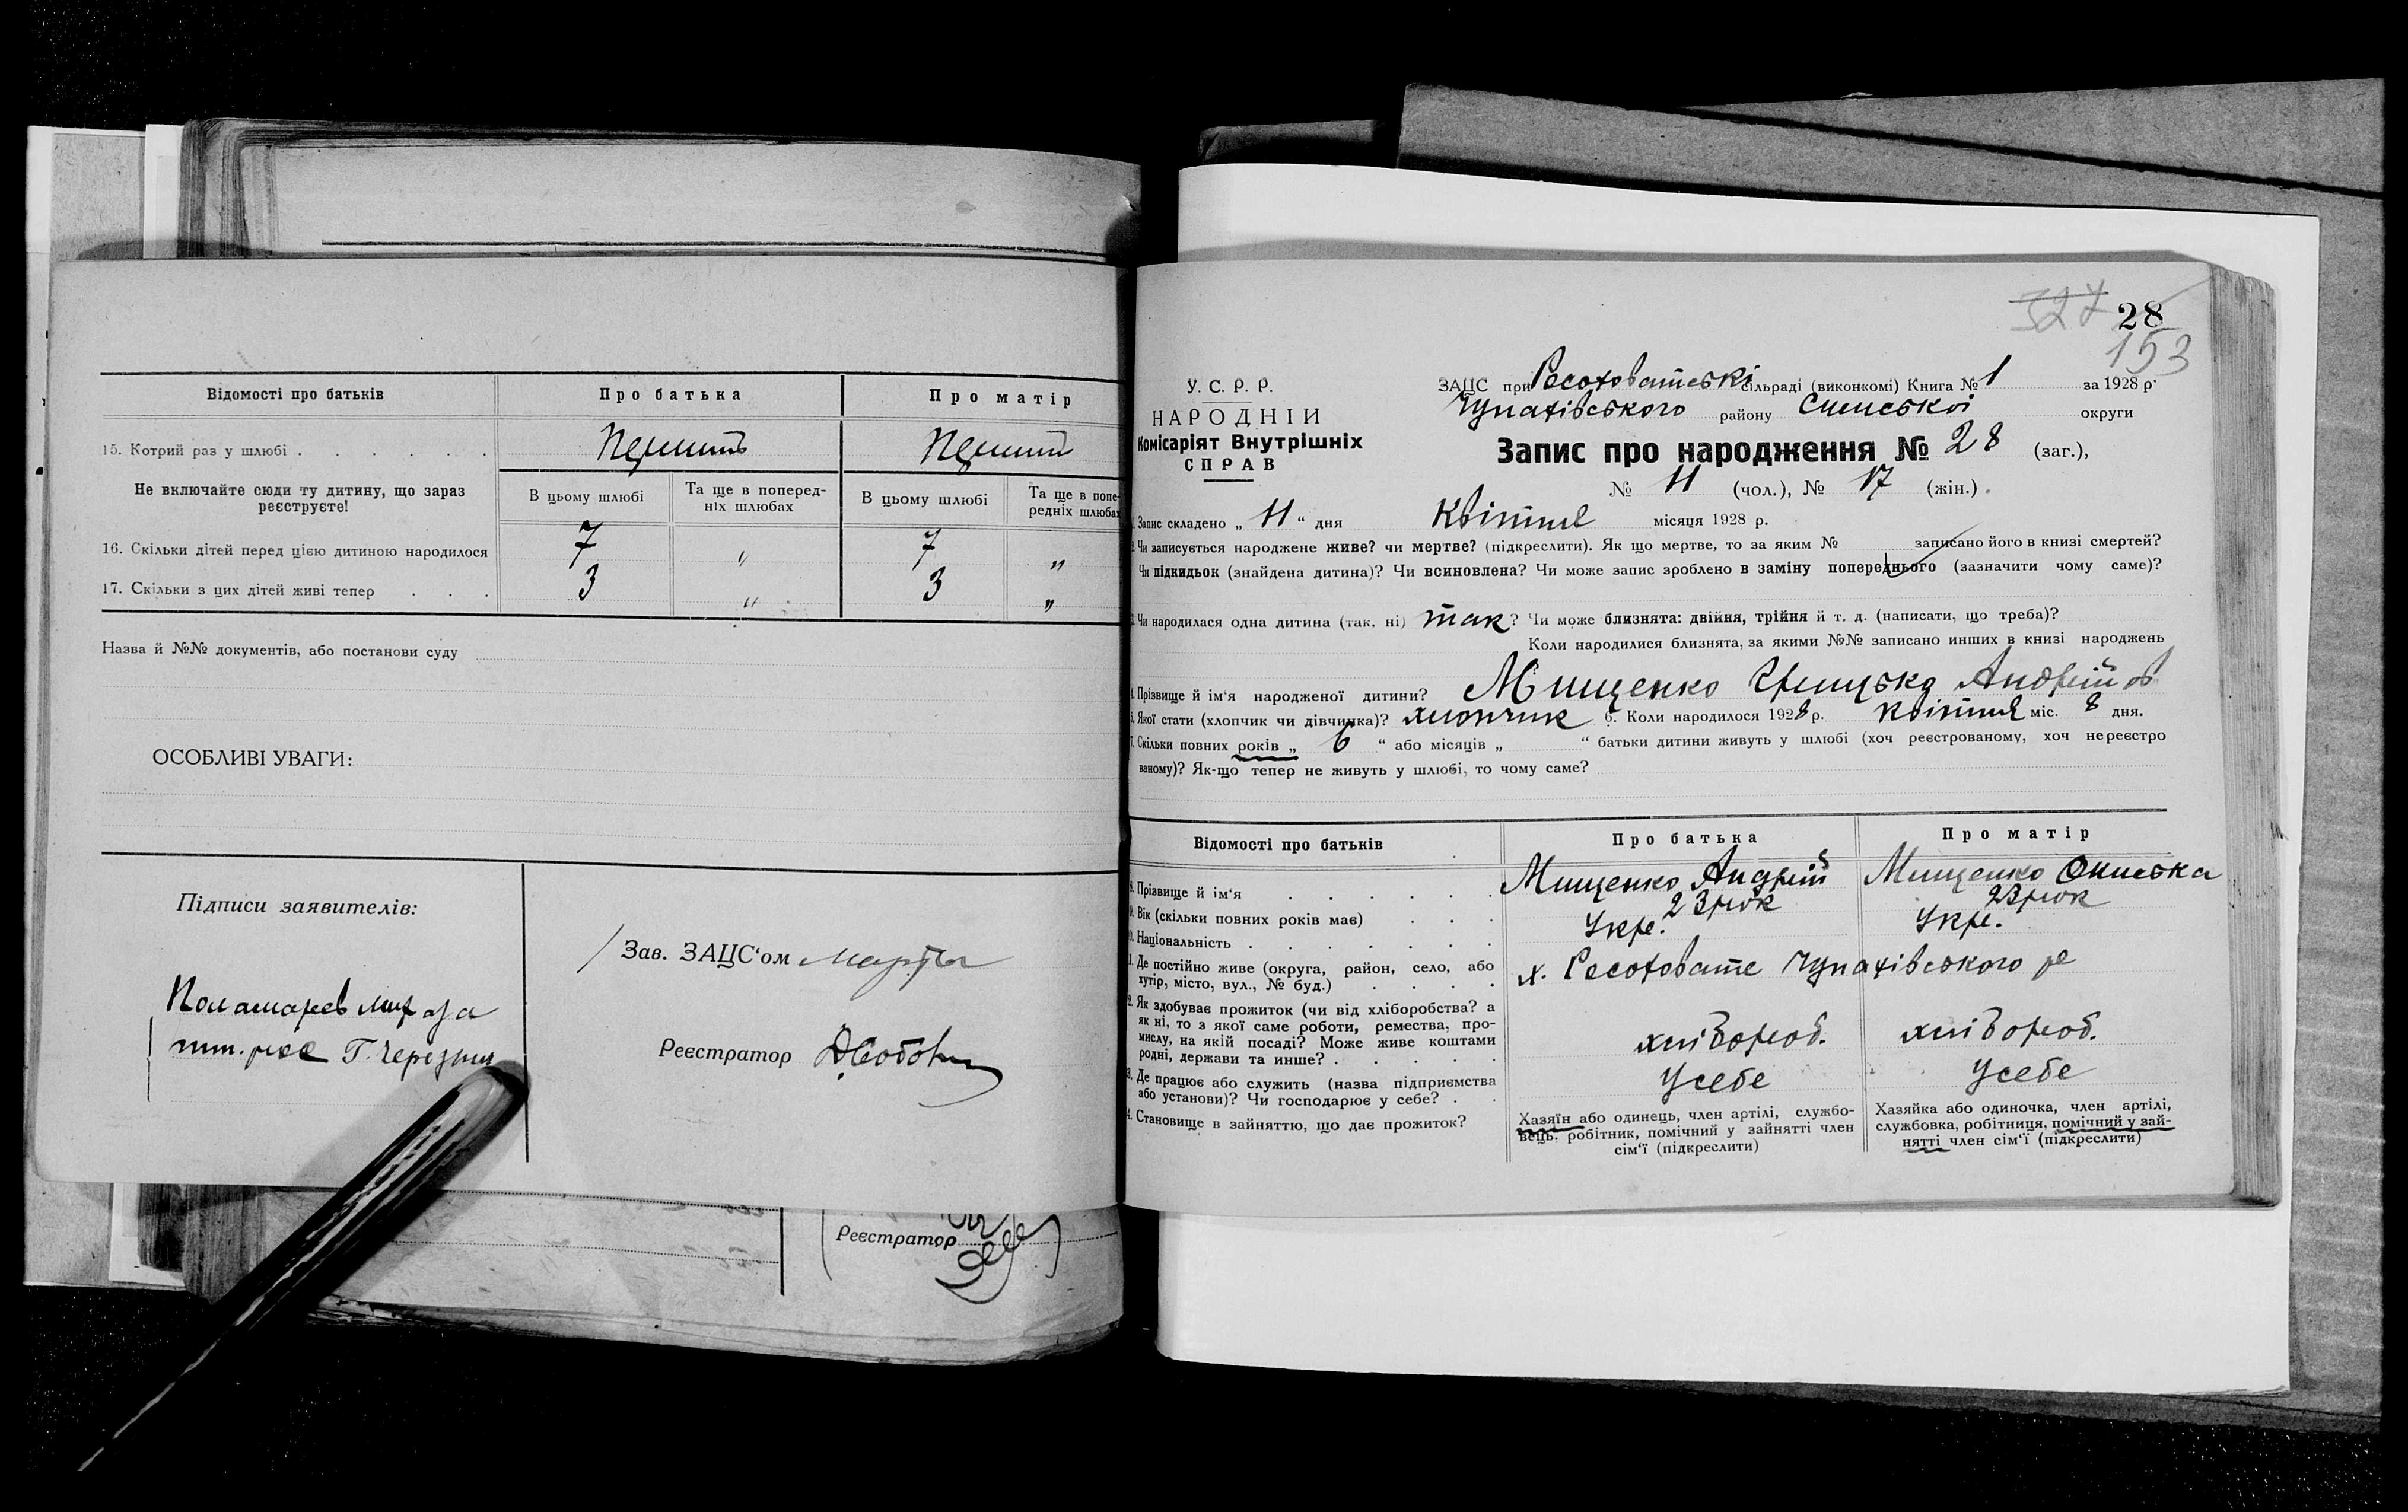 Відомості про батьків Про батька Про матір
15. Котрий раз у шлюбі . . . . . .
Не включайте сюди ту дитину, що зараз реєструєте!
В цьому шлюбі Та ще в поперед-ніх шлюбах В цьому шлюбі Та ще в попе-редніх шлюбах
16. Скільки дітей перед цією дитиною народилося 7 „ 7 „
17. Скільки з цих дітей живі тепер . . . 3 „ 3 „
Назва й №№ документів, або постанови суду
ОСОБЛИВІ УВАГИ:
Підписи заявителів:
Зав. ЗАЦС'ом
Реєстратор
Реєстратор
327 28
153
У. С. Р. Р.
НАРОДНІЙ
Комісаріят Внутрішніх
СПРАВ
ЗАЦС при Росоховатській сільраді (виконкомі) Книга № 1 за 1928 р.
Чупахівського району Сумської округи
Запис про народження № 28 (заг.),
№ 11 (чол.), № 17 (жін.).
1. Запис складено „ 11 “ дня Квітня місяця 1928 р.
2. Чи записується народжене живе? чи мертве? (підкреслити). Як що мертве, то за яким № записано його в книзі смертей?
Чи підкидьок (знайдена дитина)? Чи всиновлена? Чи може запис зроблено в заміну попереднього (зазначити чому саме)?
3. Чи народилася одна дитина (так, ні) так? Чи може близнята: двійня, трійня й т. д. (написати, що треба)?
Коли народилися близнята, за якими №№ записано инших в книзі народжень
4. Прізвище й ім'я народженої дитини? Мищенко Грицько Андрійов
5. Якої стати (хлопчик чи дівчинка)? хлопчик 6. Коли народилося 1928 р. квітня міс. 8 дня.
7. Скільки повних років „ 6 “ або місяців „ “ батьки дитини живуть у шлюбі (хоч реєстрованому, хоч нереєстро
ваному)? Як-що тепер не живуть у шлюбі, то чому саме?
Відомості про батьків Про батька Про матір
8. Прізвище й ім'я . . . . . . Мищенко Андрій Мищенко
9. Вік (скільки повних років має) . . . 23 рок 23 рок
10. Національність . . . . . . . Укр. Укр.
11. Де постійно живе (округа, район, село, або
хутір, місто, вул., № буд.) . . . . х. Росоховате Чупахівського р
12. Як здобуває прожиток (чи від хліборобства? а
як ні, то з якої саме роботи, ремества, про-
мислу, на якій посаді? Може живе коштами
родні, держави та инше? . . . . . хлібороб. хлібороб.
13. Де працює або служить (назва підприємства
або установи)? Чи господарює у себе? . . У себе У себе
14. Становище в зайняттю, що дає прожиток?
Хазяїн або одинець, член артілі, службо-
вець, робітник, помічний у зайнятті член
сім'ї (підкреслити)
Хазяйка або одиночка, член артілі,
службовка, робітниця, помічний у зай-
нятті член сім'ї (підкреслити)